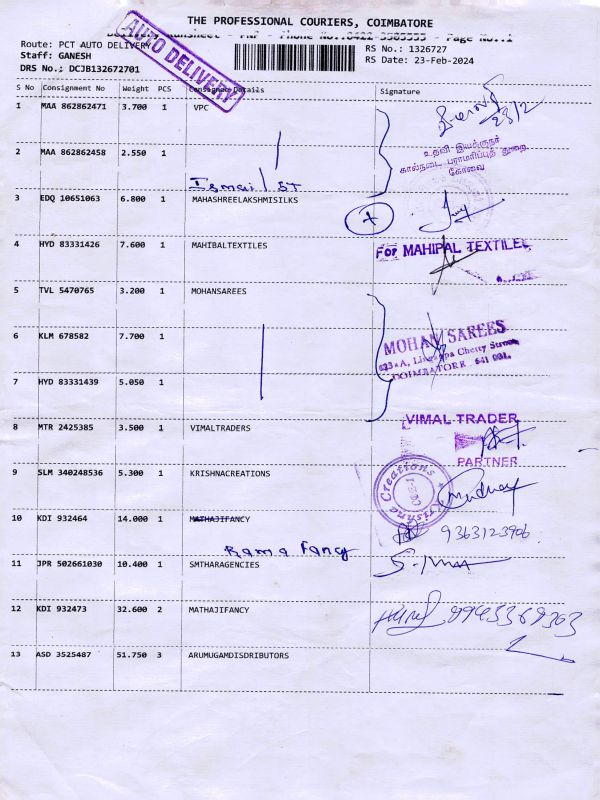 THE PROFESSIONAL COURIERS, COIMBATORE
Delivery RunSheet - PNP - Phone No.:0422-3505555 - Page No.:1
AUTO DELIVERY
Route: PCT AUTO DELIVERY
RS No.: 1326727
Staff: GANESH
RS Date: 23-Feb-2024
DRS No.: DCJB132672701
S No Consignment No Weight PCS Consignee Details Signature
1 MAA 862862471 3.700 1 VPC
23/2
2 MAA 862862458 2.550 1
உதவி இயக்குநர்
கால்நடை பராமரிப்புத் துறை
கோவை
Ismail ST
3 EDQ 10651063 6.800 1 MAHASHREELAKSHMISILKS
4 HYD 83331426 7.600 1 MAHIBALTEXTILES
For MAHIPAL TEXTILE
5 TVL 5470765 3.200 1 MOHANSAREES
6 KLM 678582 7.700 1
MOHAN SAREES
Chetty Street
COIMBATORE 641 001.
7 HYD 83331439 5.050 1
8 MTR 2425385 3.500 1 VIMALTRADERS
VIMAL TRADER
PARTNER
9 SLM 340248536 5.300 1 KRISHNACREATIONS
Krishna Creations
CBE-1
10 KDI 932464 14.000 1 MATHAJIFANCY
9363123906
Rama Fancy
11 JPR 502661030 10.400 1 SMTHARAGENCIES
12 KDI 932473 32.600 2 MATHAJIFANCY
13 ASD 3525487 51.750 3 ARUMUGAMDISDRIBUTORS